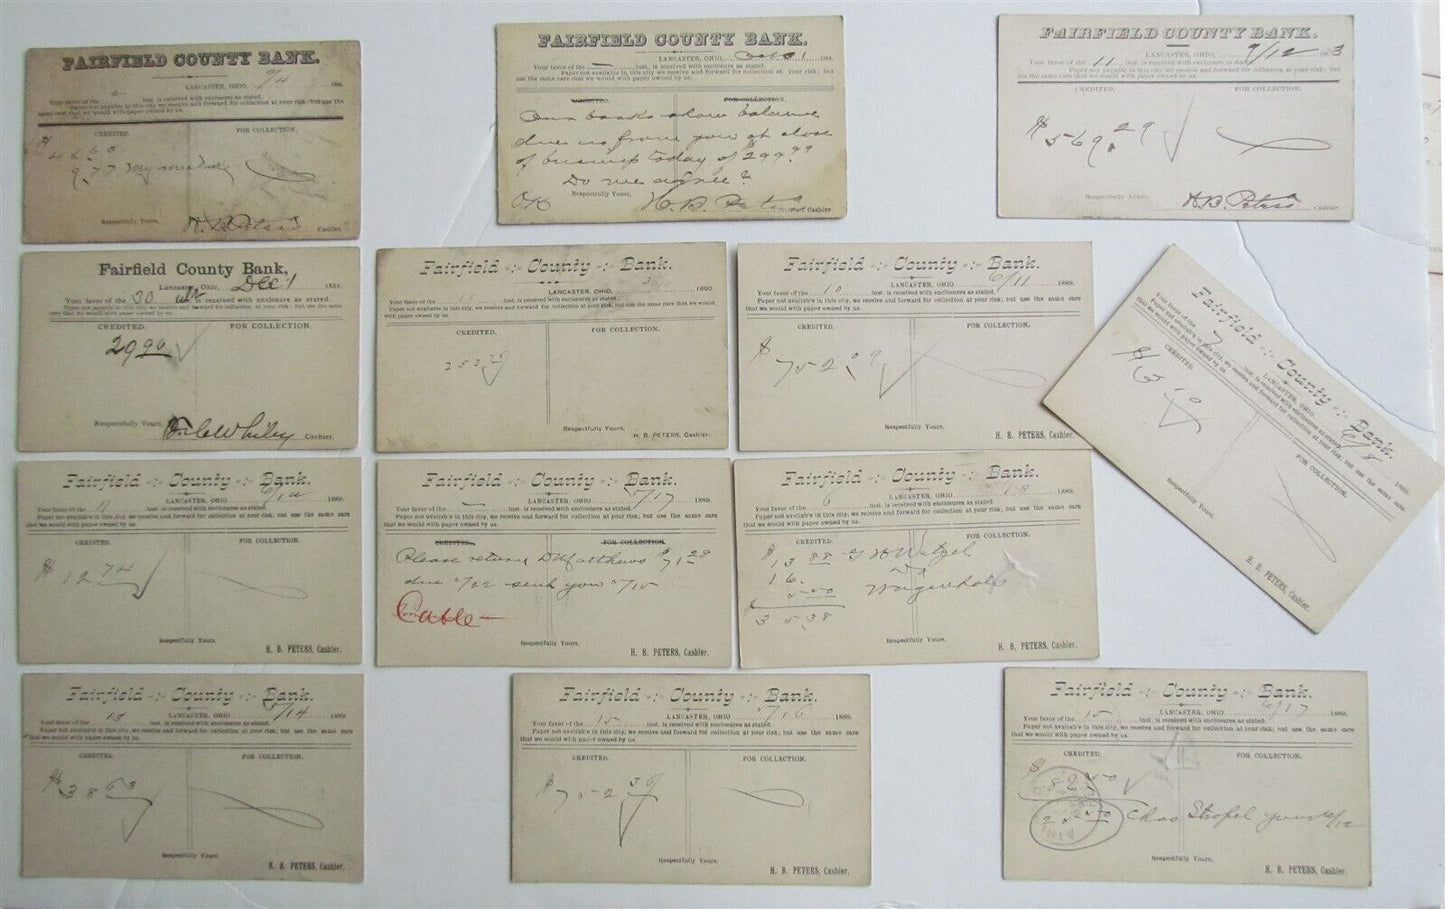 FAIRFIELD COUNTY BANK.
LANCASTER, OHIO, 9/4 188
Your favor of the 2 inst. is received with enclosures as stated.
Paper not payable in this city we receive and forward for collection at your risk; but use the
same care that we would with paper owned by us.
CREDITED. FOR COLLECTION.
$
46.60
9.77
Respectfully Yours,
H. B. Peters Cashier.
FAIRFIELD COUNTY BANK.
LANCASTER, OHIO, 188
Your favor of the — inst. is received with enclosure as stated.
Paper not available in this city we receive and forward for collection at your risk; but
use the same care that we would with paper owned by us.
CREDITED. FOR COLLECTION.
Our books show balance
due us from you at close
of business today of $299.99
Do we agree?
Respectfully Yours,
OK H. B. Peters Cashier
FAIRFIELD COUNTY BANK.
LANCASTER, OHIO, 9/12 1883
Your favor of the 11 inst. is received with enclosure as stated.
Paper not available in this city we receive and forward for collection at your risk; but
use the same care that we would with paper owned by us.
CREDITED. FOR COLLECTION.
$569.29
Respectfully Yours,
H. B. Peters Cashier.
Fairfield County Bank,
Lancaster, Ohio, Dec 1 1881.
Your favor of the 30 ult is received with enclosure as stated.
Paper not payable in this city we receive and forward for collection at your risk; but use the same
care that we would with paper owned by us.
CREDITED. FOR COLLECTION
29.99
Respectfully Yours,
Cashier.
Fairfield County Bank.
LANCASTER, OHIO, 1890.
Your favor of the inst. is received with enclosure as stated.
Paper not available in this city, we receive and forward for collection at your risk; but use the same care that we would
with paper owned by us.
CREDITED. FOR COLLECTION.
253.25
Respectfully Yours,
H. B. PETERS, Cashier.
Fairfield County Bank.
LANCASTER, OHIO 6/11 1889.
Your favor of the 10 inst. is received with enclosures as stated.
Paper not available in this city, we receive and forward for collection at your risk; but use the same care
that we would with paper owned by us.
CREDITED. FOR COLLECTION.
$752.09
Respectfully Yours,
H. B. PETERS, Cashier.
Fairfield County Bank.
LANCASTER, OHIO 6/8 1889.
Your favor of the 7 inst. is received with enclosures as stated.
Paper not available in this city, we receive and forward for collection at your risk; but use the same care
that we would with paper owned by us.
CREDITED. FOR COLLECTION.
Respectfully Yours,
H. B. PETERS, Cashier.
Fairfield County Bank.
LANCASTER, OHIO 1889.
Your favor of the 11 inst. is received with enclosures as stated.
Paper not available in this city, we receive and forward for collection at your risk; but use the same care
that we would with paper owned by us.
CREDITED. FOR COLLECTION.
$12 74
Respectfully Yours,
H. B. PETERS, Cashier.
Fairfield County Bank.
LANCASTER, OHIO 5/17 1889.
Your favor of the — inst. is received with enclosures as stated.
Paper not available in this city, we receive and forward for collection at your risk; but use the same care
that we would with paper owned by us.
CREDITED. FOR COLLECTION.
Please return D Matthews $71.28
due 5/22 sent you 5/15
Cable
Respectfully Yours,
H. B. PETERS, Cashier.
Fairfield County Bank.
LANCASTER, OHIO, 1889.
Your favor of the 6 inst. is received with enclosures as stated.
Paper not available in this city, we receive and forward for collection at your risk; but use the same care
that we would with paper owned by us.
CREDITED. FOR COLLECTION.
$13 88 Wetzel
16.
5.50 Wagenhals
35.38
Respectfully Yours,
H. B. PETERS, Cashier.
Fairfield County Bank.
LANCASTER, OHIO 5/14 1889.
Your favor of the 13 inst. is received with enclosures as stated.
Paper not available in this city, we receive and forward for collection at your risk; but use the same care
that we would with paper owned by us.
CREDITED. FOR COLLECTION.
$38 63
Respectfully Yours,
H. B. PETERS, Cashier.
Fairfield County Bank.
LANCASTER, OHIO 5/16 1889.
Your favor of the 15 inst. is received with enclosures as stated.
Paper not available in this city, we receive and forward for collection at your risk; but use the same care
that we would with paper owned by us.
CREDITED. FOR COLLECTION.
$752 36
Respectfully Yours,
H. B. PETERS, Cashier.
Fairfield County Bank.
LANCASTER, OHIO 6/17 1889.
Your favor of the 15 inst. is received with enclosures as stated.
Paper not available in this city, we receive and forward for collection at your risk; but use the same care
that we would with paper owned by us.
CREDITED. FOR COLLECTION.
$
82.50
Chas Strofel yours 6/12
Respectfully Yours,
H. B. PETERS, Cashier.